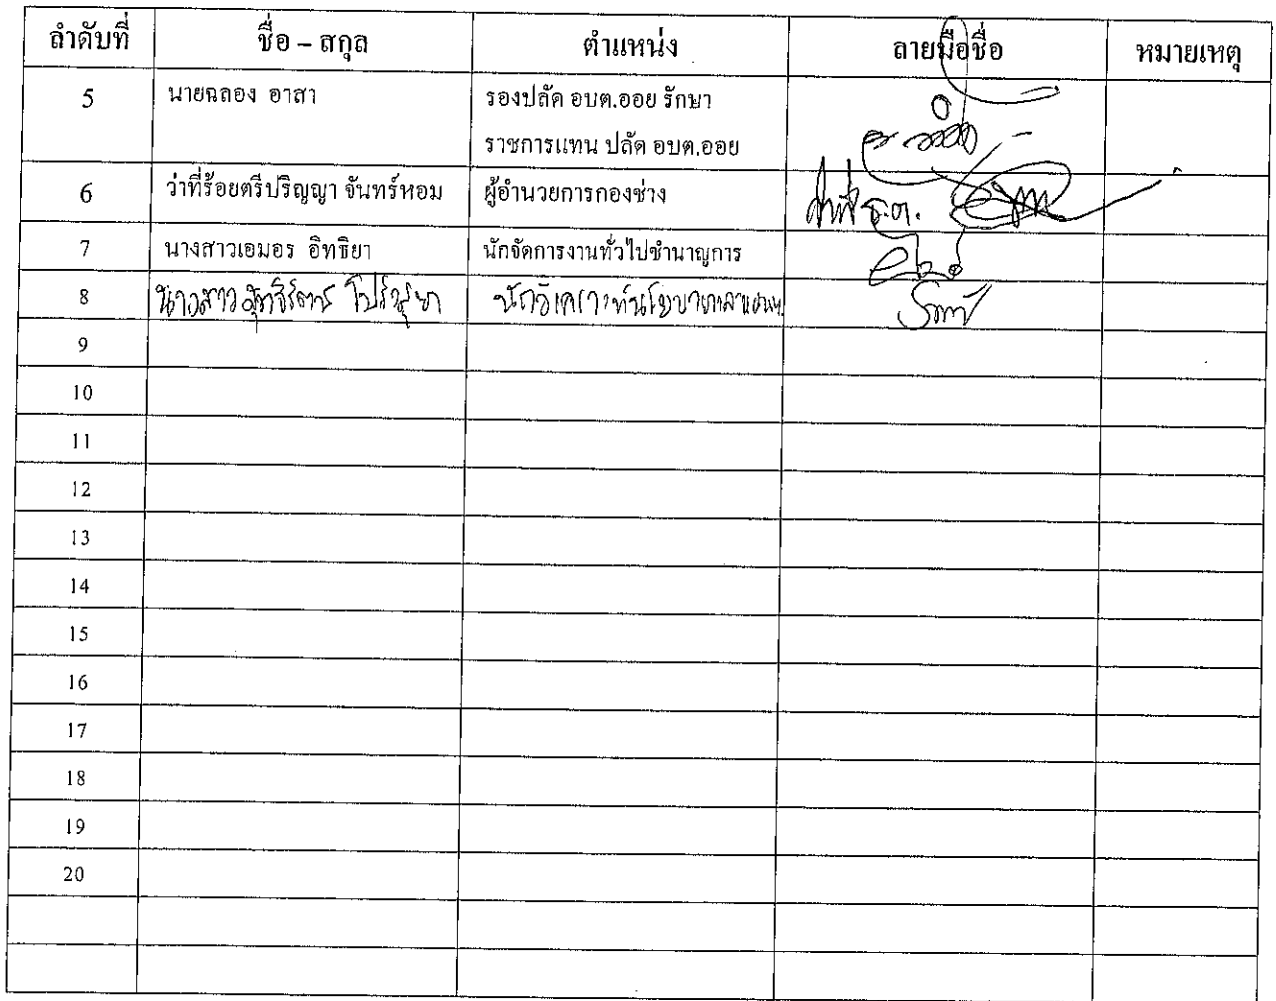 ลำดับที่ ชื่อ – สกุล ตำแหน่ง ลายมือชื่อ หมายเหตุ
5 นายฉลอง อาสา รองปลัด อบต.ออย รักษา
ราชการแทน ปลัด อบต.ออย
6 ว่าที่ร้อยตรีปริญญา จันทร์หอม ผู้อำนวยการกองช่าง ว่าที่ ร.ต.
7 นางสาวเอมอร อิทธิยา นักจัดการงานทั่วไปชำนาญการ
8 นางสาว นักวิเคราะห์นโยบายและแผนฯ
9
10
11
12
13
14
15
16
17
18
19
20